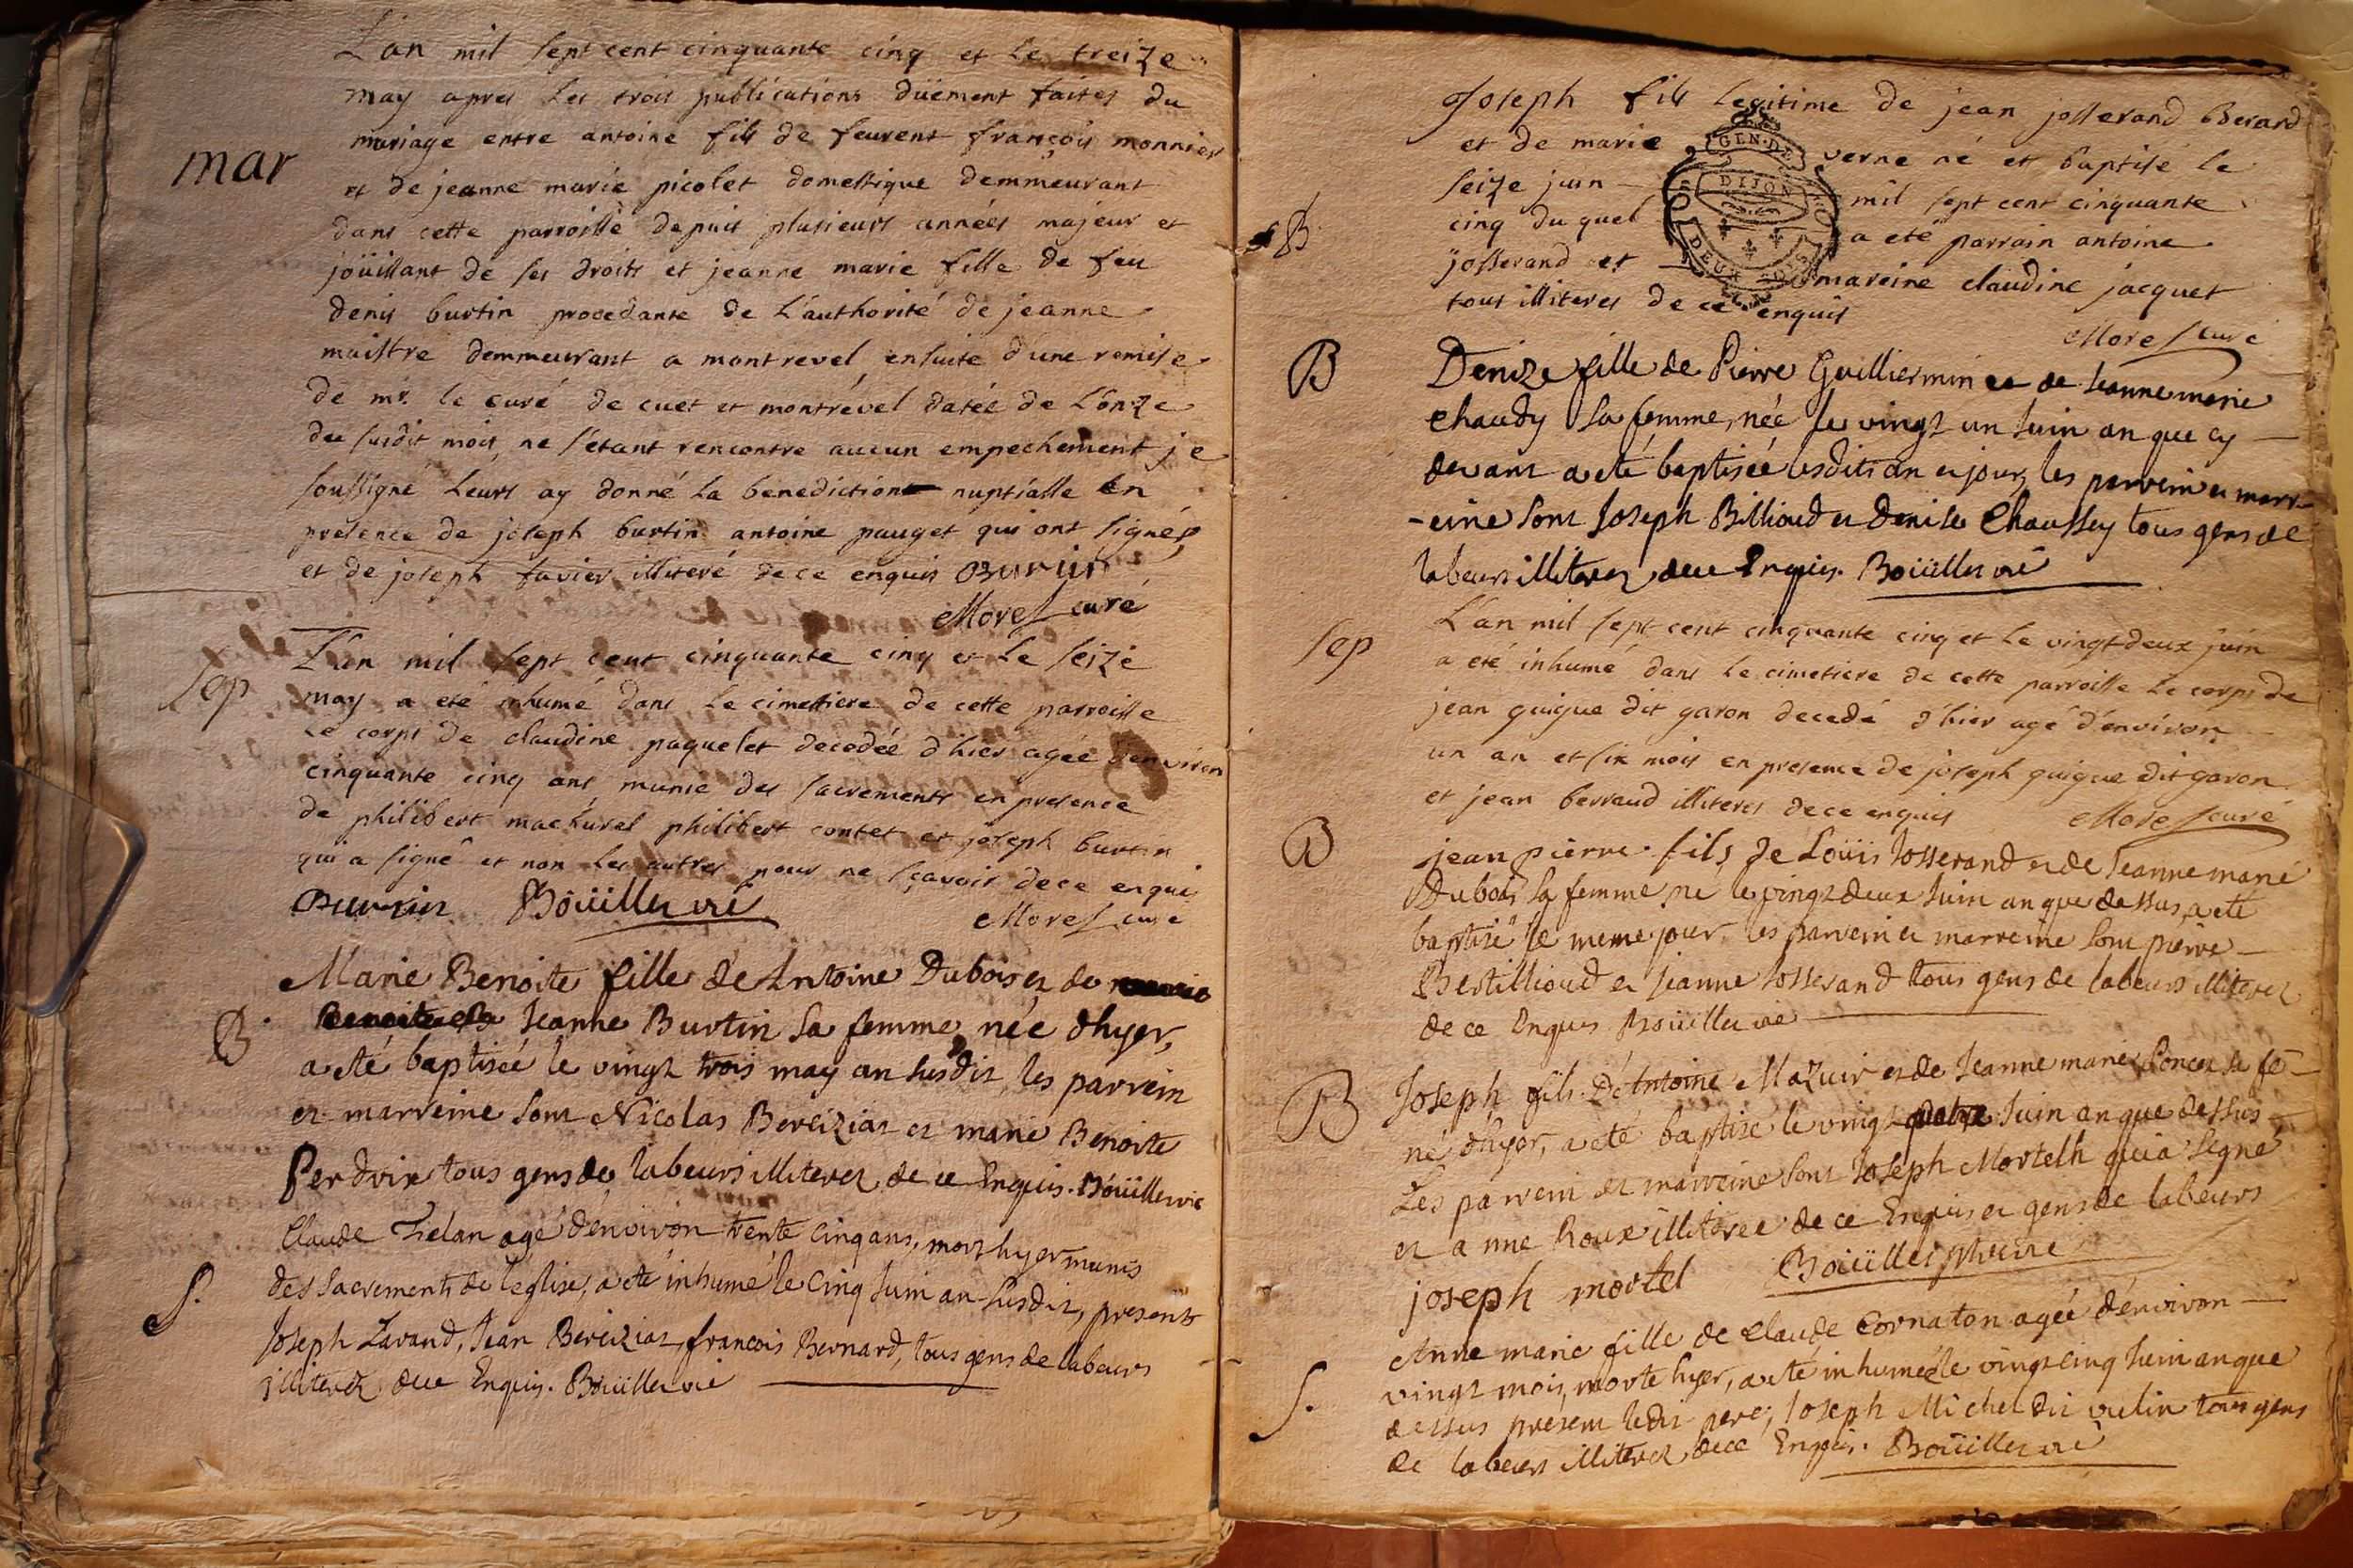 L'an mil sept cent cinquante cinq et le treize
may apres les trois publications düement faites du
mar
mariage entre antoine fils de feurent françois monnier
et de jeanne marie picolet domestique demmeurant
dans cette parroisse depuis plusieurs années majeur et
joüissant de ses droits et jeanne marie fille de feu
denis burtin procedante de L'authorité de jeanne
maistre demmeurant a montrevel ensuite d'une remise
de mr. le curé de cuet et montrével datée de L'onze
du susdit mois, ne s'etant rencontre aucun empechement je
soussigné Leurs ay donné La benediction nuptialle en
presence de joseph burtin antoine pauget qui ont signés
et de joseph favier illiteré de ce enquis Burtin
Morel curé
L'an mil sept cent cinquante cinq et Le seize
Sep
may a eté inhumé dans Le cimettiere de cette parroisse
Le corps de claudine paquelet decedée d'hier agée d'environ
cinquante cinq ans munie des sacrements en presence
de philibert machurel philibert contet et joseph burtin
qui a signé et non Les autres pour ne sçavoir de ce enqui
Burtin Boüiller vic
Morel curé
Marie Benoite fille de Antoine Dubois et de
B.
Jeanne Burtin sa femme, née d'hyer,
a eté baptisée le vingt trois may an susdit, les parrein
et marreine sont Nicolas Bereiziat et marie Benoite
Perdrix tous gens de labeurs illiterez de ce Enquis. Boüiller vic
Claude Felan agé d'environ trente cinq ans, mort hyer munis
S.
des sacrements de l'eglise, a eté inhumé le cinq Juin an susdit, presents
Joseph Lavand, Jean Bereiziat, francois Bernard, tous gens de labeurs
illiterez de ce Enquis. Boüiller vic
Joseph fils Legitime de jean josserand Berard
et de marie verne né et baptisé le
seize juin mil sept cent cinquante
B
cinq du quel a eté parrain antoine
josserand et mareine claudine jacquet
tous illiteres de ce enquis
Morel curé
GEN. DE
DIJON
DEUX
B
Denize fille de Pierre Guilliermin et de Jeanne marie
chaudy sa femme, née le vingt un Juin an que cy
devant a eté baptisée lesdits an et jour, les parrein et marr-
-eine sont Joseph Billioud et denise Chaussey tous gens de
labeurs illiterez de ce Enquis. Boüiller vic
L'an mil sept cent cinquante cinq et Le vingt deux juin
Sep
a eté inhumé dans Le cimetiere de cette parroisse Le corps de
jean guigue dit garon decedé d'hier agé d'environ
un an et six mois en presence de joseph guigue dit garon
et jean berraud illiteres de ce enquis
Morel curé
B
jean pierre fils de Loüis Josserand et de Jeanne marie
Dubois sa femme, né le vingt deux Juin an que dessus, a eté
baptisé le meme jour, les parrein et marreine sont pierre
Bertillioud et jeanne Josserand tous gens de labeurs illiterez
de ce Enquis Boüiller vic
B
Joseph fils d'Antoine Mazuir et de Jeanne marie Poncet sa fe
né d'hyer, a eté baptisé le vingt quatre Juin an que dessus
Les parrein et marreine sont Joseph Mortelh qui a signé
et anne Roux illiterée de ce Enquis et gens de labeurs
joseph mortel Boüiller
Anne marie fille de Claude Cornaton agée d'environ
S.
vingt mois, morte hyer, a eté inhumée le vingt cinq Juin an que
dessus present ledit pere, Joseph Michel dit vulin tous gens
de labeurs illiterez de ce Enquis. Boüiller vic